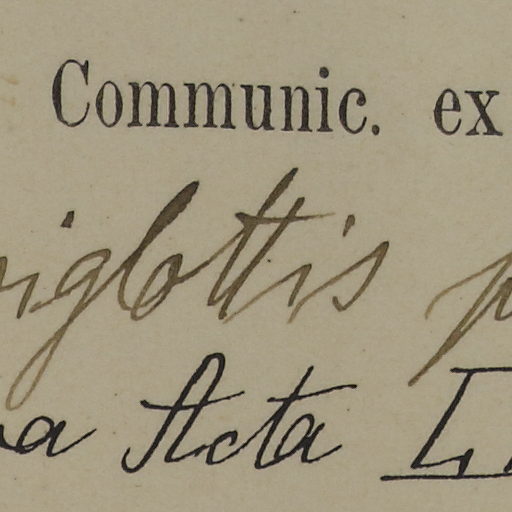 Communic. ex
iglottis p
a Acta